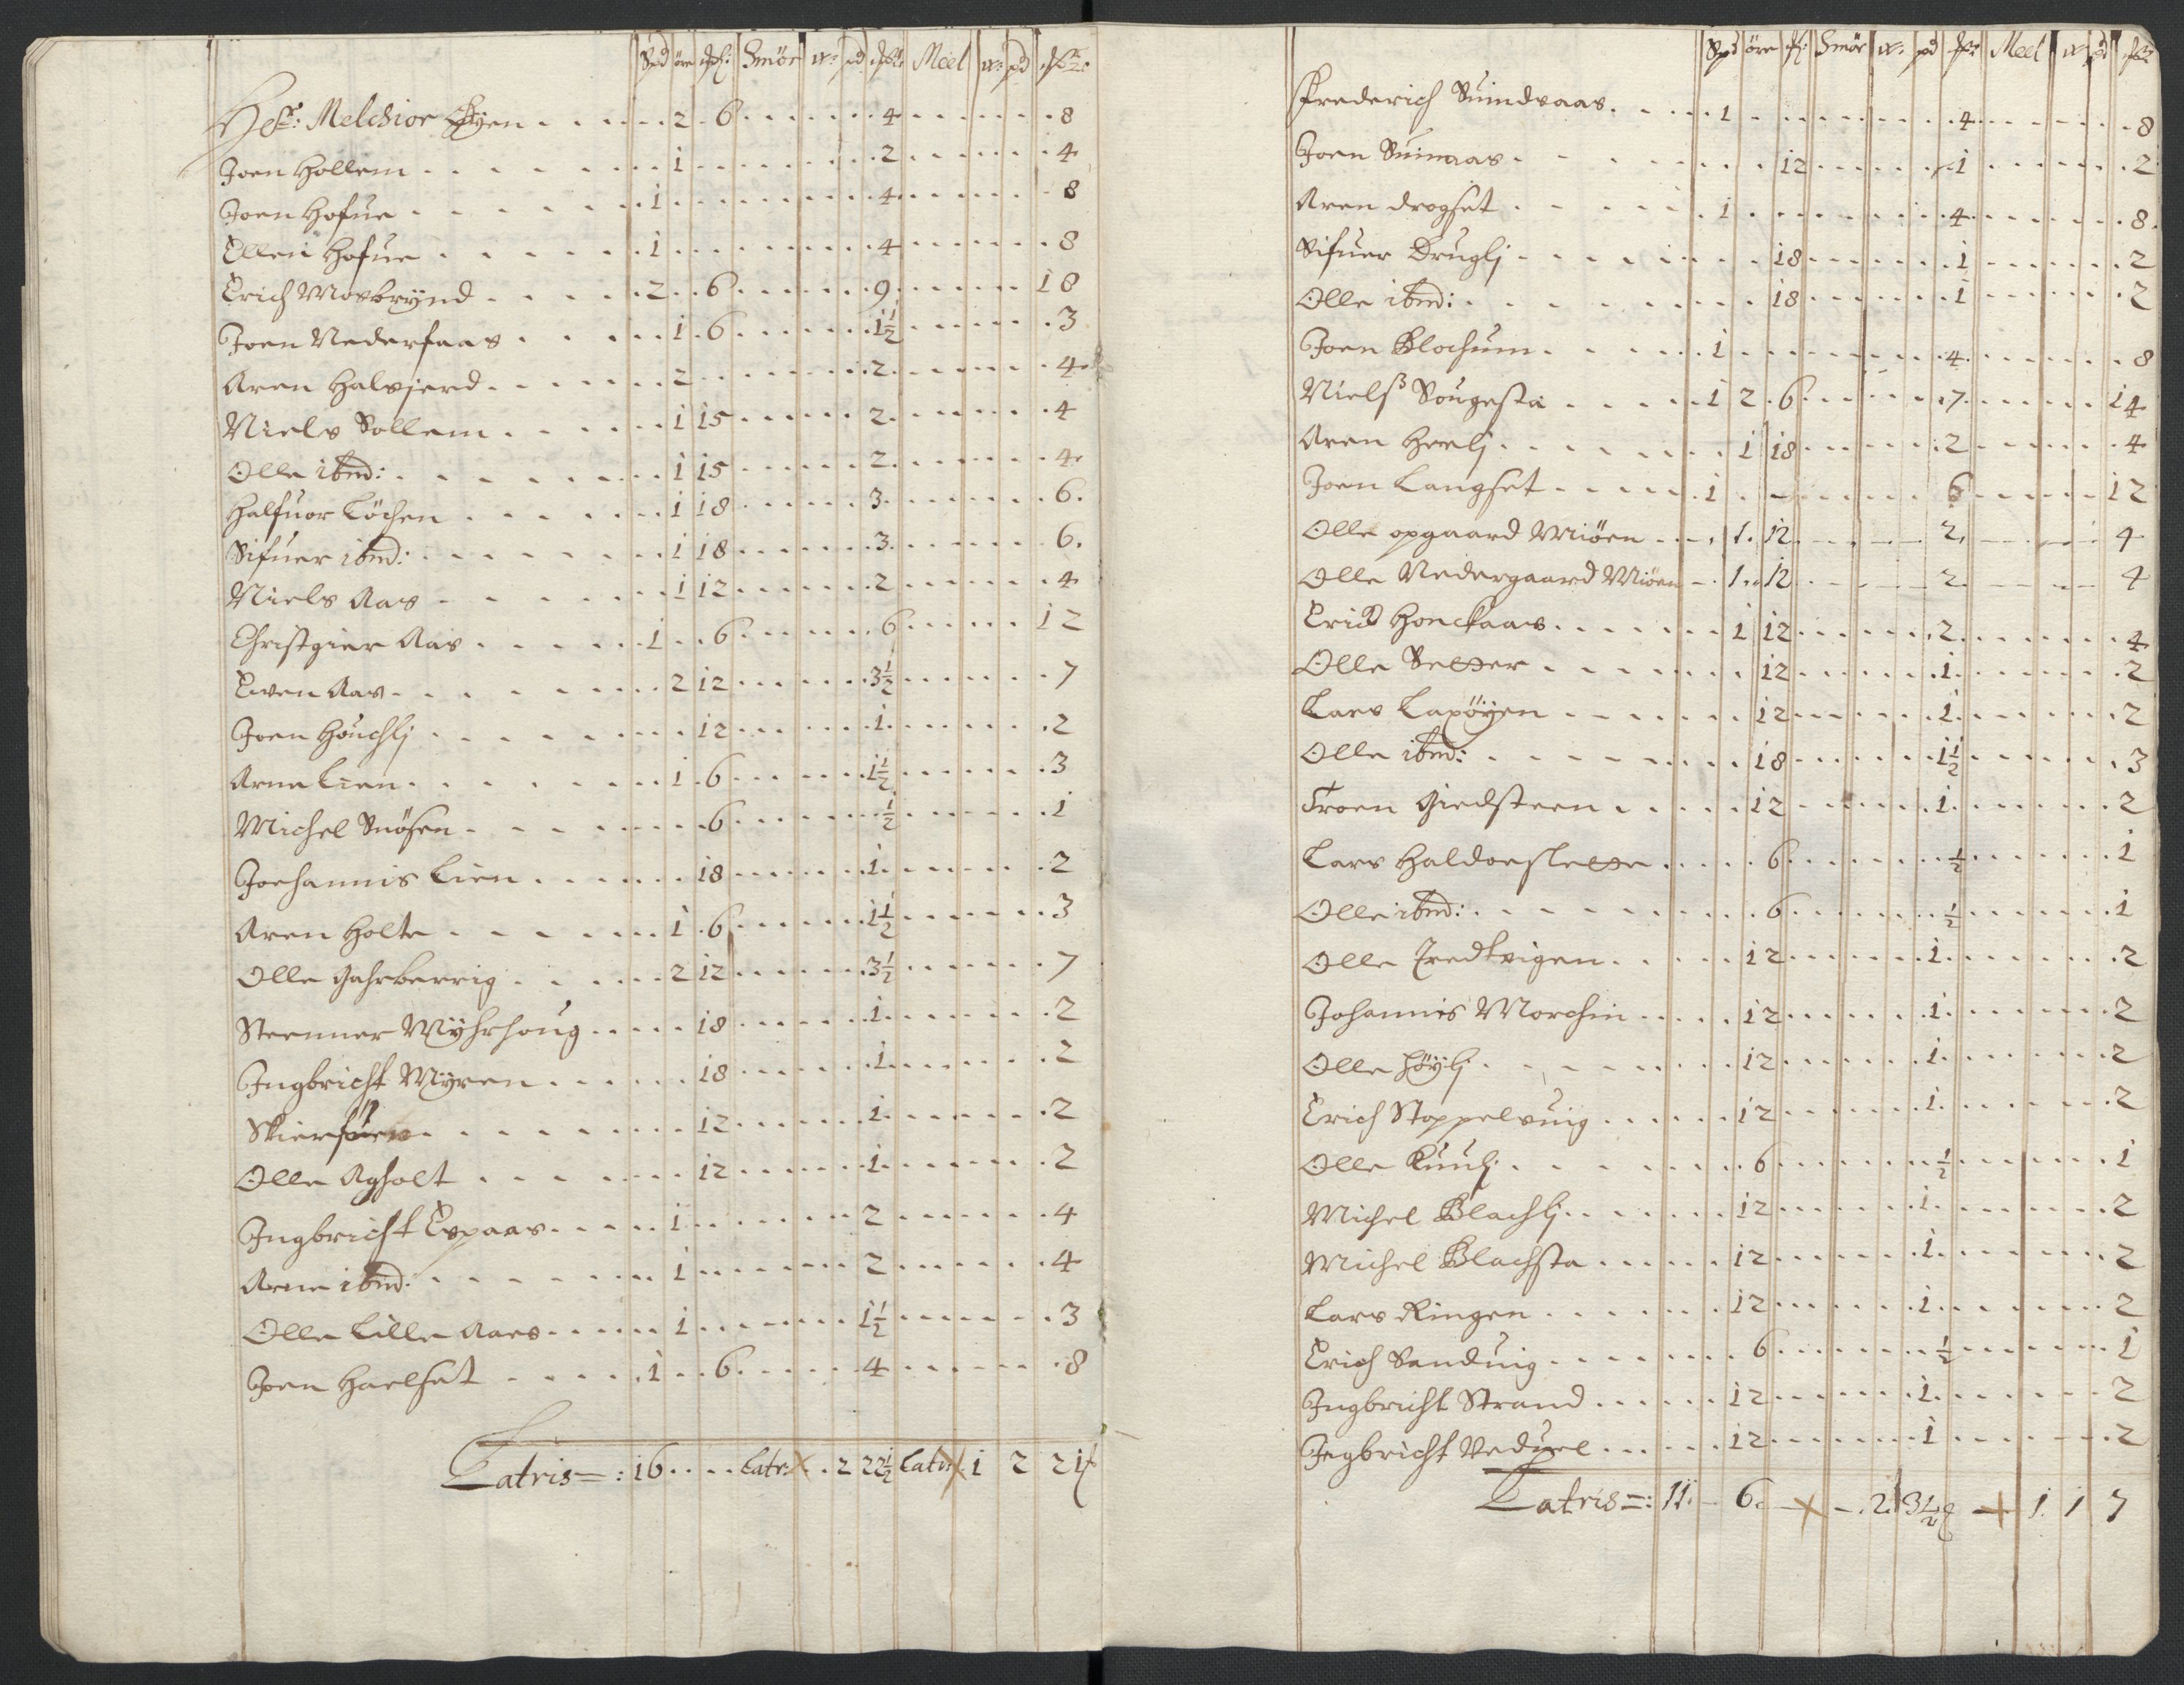 Spd öre Smör pd Meel pd
Hr: Melchior Øyen 2 6 4 8
Joen Hollem 1 2 4
Joen Hofue 1 4 8
Ellen Hofue 1 4 8
Erich Mosbrynd 2 6 9 18
Joen Nederfaas 1 6 1½ 3
Aren Halsjerd 2 2 4
Niels Sollem 1 15 2 4
Olle ibmd: 1 15 2 4
Halfuor Löchen 1 18 3 6
Sifuer ibmd: 1 18 3 6
Niels Aas 1 12 2 4
Christgier Aas 1 6 6 12
Ewen Aas 2 12 3½ 7
Joen Houchlj 12 1 2
Arne Lien 1 6 1½ 3
Michel Snösen 6 ½ 1
Joehannis Lien 18 1 2
Aren Holte 1 6 1½ 3
Olle Gahrberrig 2 12 3½ 7
Steenner Myhrhoug 18 1 2
Ingbricht Myren 18 1 2
12 1 2
Olle Agholt 12 1 2
Ingbricht Espaas 1 2 4
Arne ibmd: 1 2 4
Olle Lille Aaes 1 1½ 3
Joen Haelset 1 6 4 8
Latris =: 16 Latr: 2 22½ Latr: 1 2 21
Spd öre Smör pd Meel pd
Frederich Suindsaas 1 4 8
Joen Suinaas 12 1 2
Aren drogset 1 4 8
Sifuer Druglj 18 1 2
Olle ibmd: 18 1 2
Joen Blochum 1 4 8
Niels Sougesta 1 2 6 7 14
Aren Herlj 1 18 2 4
Joen Langset 1 6 12
Olle opgaard Miöen 1 12 2 4
Olle Nedergaard Miöen 1 12 2 4
Erich Honckaas 1 12 2 4
Olle Setter 12 1 2
Lars Laxöyen 12 1 2
Olle ibmd: 18 1½ 3
Troen Giedsteen 12 1 2
Lars Haldorslette 6 ½ 1
Olle ibmd: 6 ½ 1
Olle Tredtvigen 12 1 2
Johannis Morchin 12 1 2
Olle Höylj 12 1 2
Erich Stoppelvuig 12 1 2
Olle Kuulj 6 ½ 1
Michel Blachlj 12 1 2
Michel Blachsta 12 1 2
Lars Ringen 12 1 2
Erich Sanduig 6 ½ 1
Ingbricht Strand 12 1 2
Ingbricht Veduel 12 1 2
Latris =: 11 6 2 3½ 1 1 7